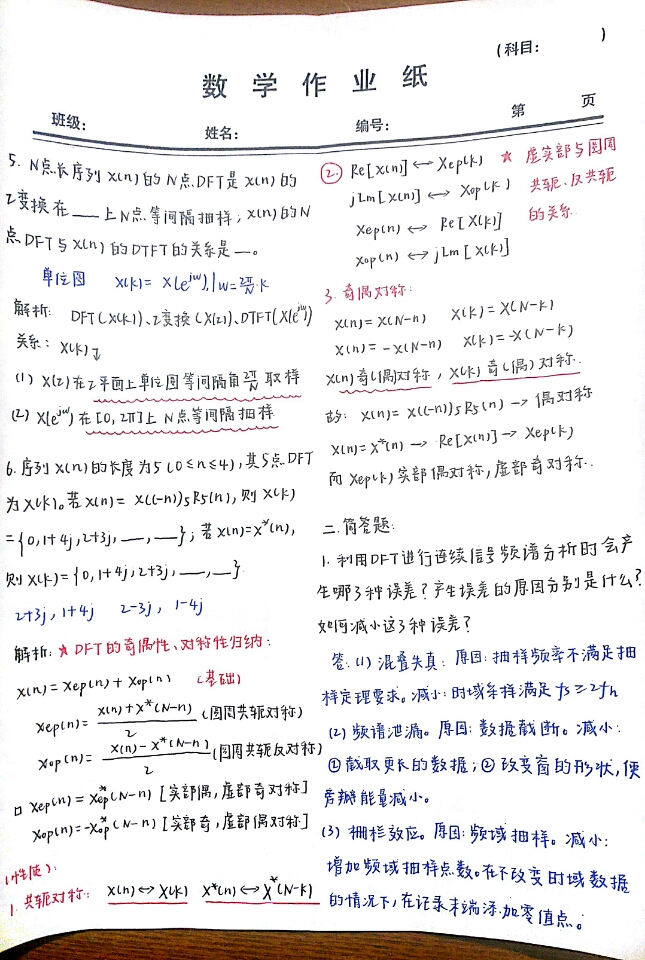 (科目: )
数学作业纸
班级: 姓名: 编号: 第 页
5. N点长序列 x(n)的N点DFT是x(n)的
Z变换在 ___ 上N点等间隔抽样，x(n)的N
点DFT与x(n)的DTFT的关系是 __。
单位圆 X(k) = X(e^{jw})|w=2π/N·k
解析: DFT(X(k))、Z变换(X(z))、DTFT(X(e^{jw}))
关系: X(k)↴
(1) X(z)在Z平面上单位圆等间隔角2π/N取样
(2) X(e^{jw})在[0, 2π]上N点等间隔抽样
6. 序列x(n)的长度为5(0≤n≤4), 其5点DFT
为X(k)。若x(n) = x((-n))5R5(n), 则X(k)
={0,1+4j,2+3j, __, __}; 若x(n)=x*(n),
则X(k)={0,1+4j,2+3j, __, __}
2+3j, 1+4j 2-3j, 1-4j
解析: ★DFT的奇偶性、对称性归纳:
x(n) = xep(n) + xop(n) (基础)
xep(n) = (x(n)+x*(N-n))/2 (圆周共轭对称)
xop(n) = (x(n)-x*(N-n))/2 (圆周共轭反对称)
□ xep(n) = xep*(N-n) [实部偶,虚部奇对称]
xop(n) = -xop*(N-n) [实部奇,虚部偶对称]
(性质):
1. 共轭对称: x(n)↔X(k) x*(n)↔X*(N-k)
②. Re[x(n)]↔Xep(k) ★ 虚实部与圆周
jLm[x(n)]↔Xop(k) 共轭、反共轭
xep(n)↔Re[X(k)] 的关系
xop(n)↔jLm[X(k)]
3. 奇偶对称:
x(n)=x(N-n) X(k)=X(N-k)
x(n)=-x(N-n) X(k)=-X(N-k)
x(n)奇(偶)对称, X(k)奇(偶)对称.
故: x(n)=x((-n))5R5(n)→偶对称
x(n)=x*(n)→Re[x(n)]→Xep(k)
而Xep(k)实部偶对称,虚部奇对称.
二. 简答题:
1. 利用DFT进行连续信号频谱分析时会产
生哪3种误差？产生误差的原因分别是什么？
如何减小这3种误差？
答: (1) 混叠失真: 原因: 抽样频率不满足抽
样定理要求。减小: 时域采样满足fs≥2fh
(2) 频谱泄漏。原因: 数据截断。减小:
①截取更长的数据；②改变窗的形状,使
旁瓣能量减小。
(3) 栅栏效应。原因: 频域抽样。减小:
增加频域抽样点数。在不改变时域数据
的情况下,在记录末端添加零值点。